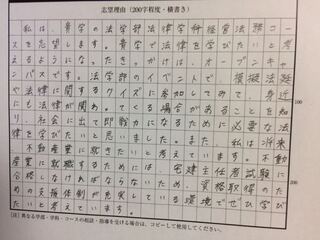 志望理由(200字程度・横書き)
私は、貴学の法学部法律学科経営法務コー
スを志望します。貴学で法律を学びたいと考
えるようになったきっかけは、オープンキャ
ンパスです。法学部のイベントで、模擬法廷
や法律に関するクイズに参加してみて、身近
100
にも法律が関わってくる場合があることを知
り、社会に出て即戦力になるために必要な法
律を学びたいと思いました。また、私は将来
不動産業に就きたいと考えています。不動
産業に就職するためには、宅建主任者試験に
200
合格しなければならないため、資格取得のた
めの支援体制が充実している環境でぜひ学び
たいと考えています。
(注)異なる学部・学科・コースの相談・指導を受ける場合は、コピーして使用してください。